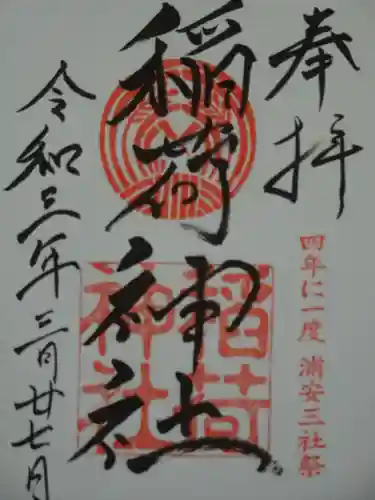 奉拝
四年に一度 浦安三社祭
稲荷神社
稲荷神社
令和三年三月廿七日